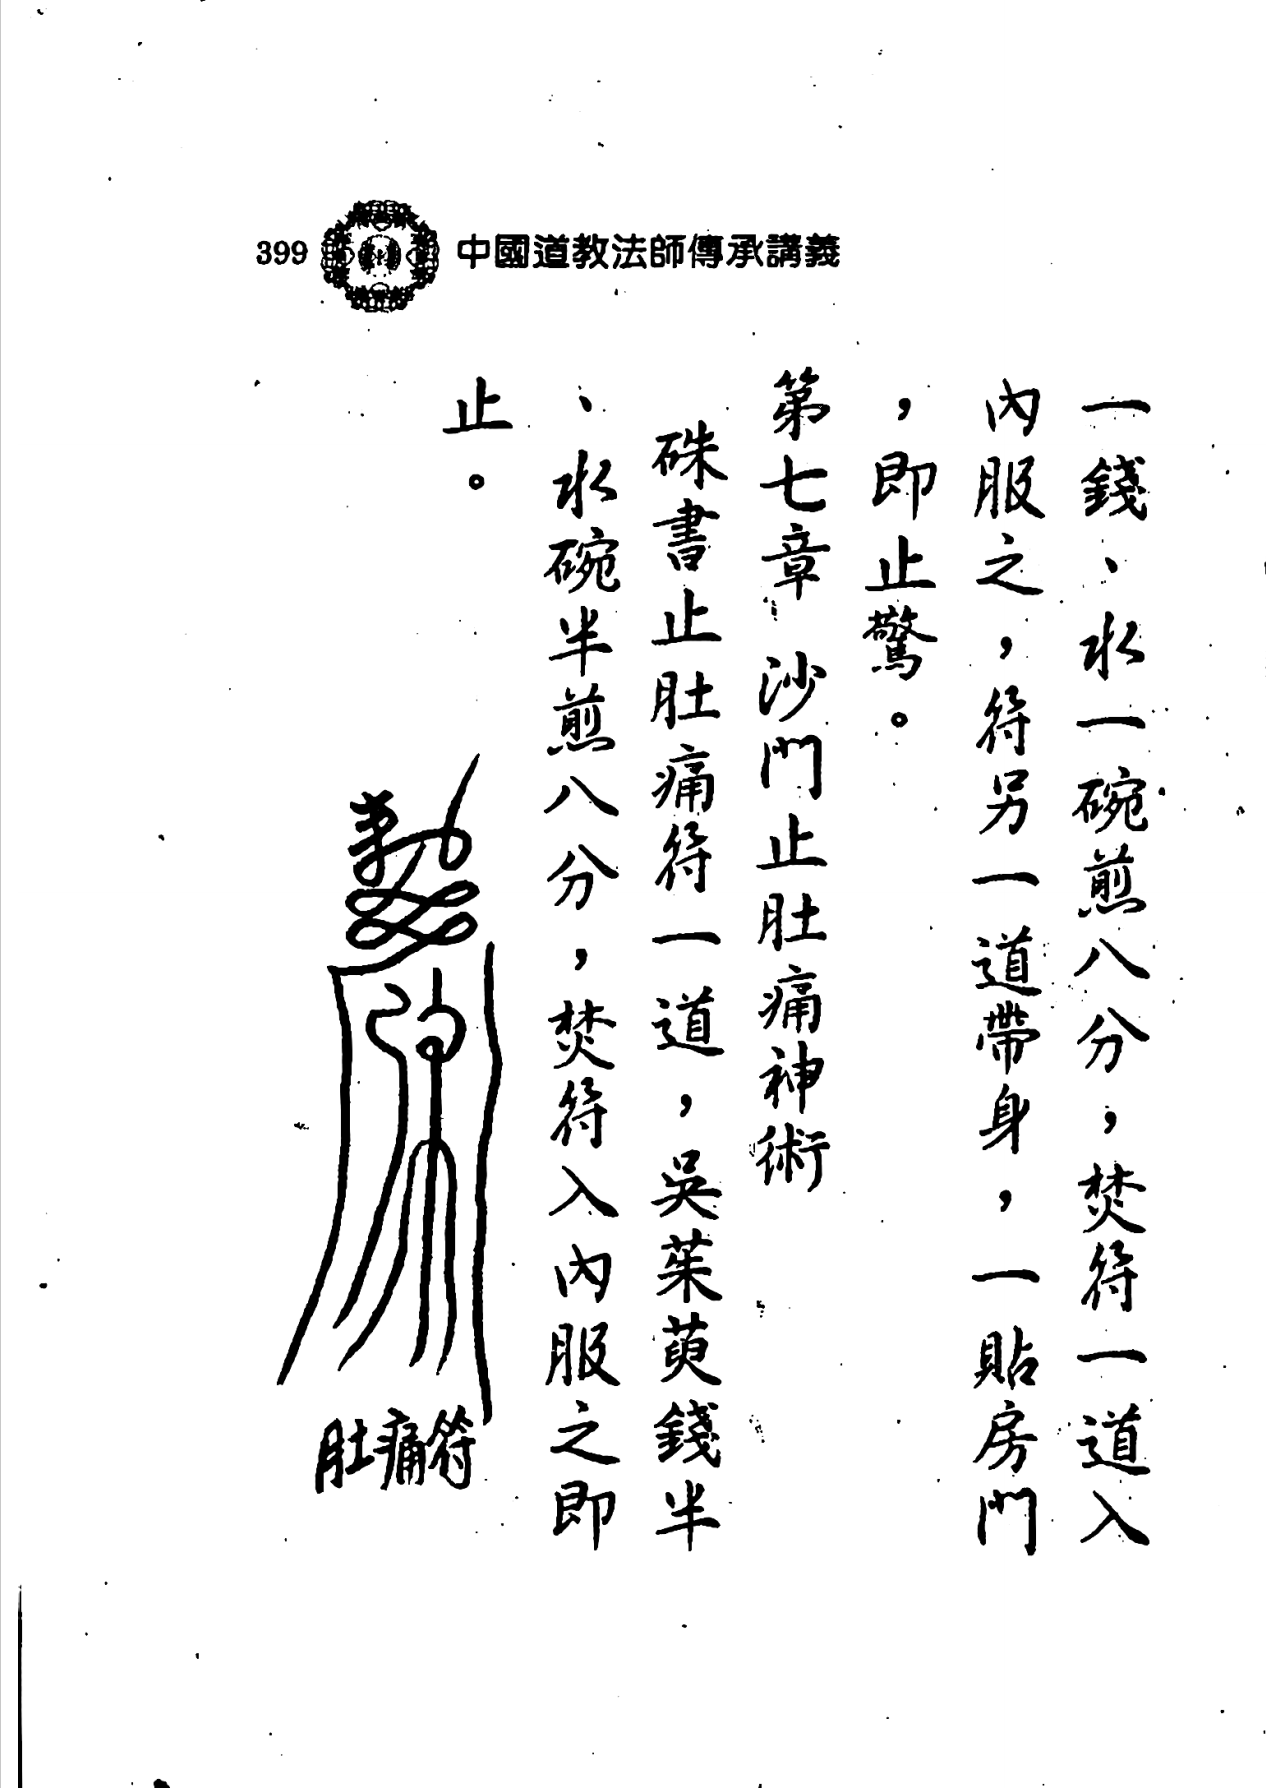 399 中國道教法師傳承講義
一錢、水一碗煎八分，焚符一道入
內服之，符另一道帶身，一貼房門
，即止驚。
第七章 沙門止肚痛神術
硃書止肚痛符一道，吳茱萸錢半
、水碗半煎八分，焚符入內服之即
止。
肚痛符